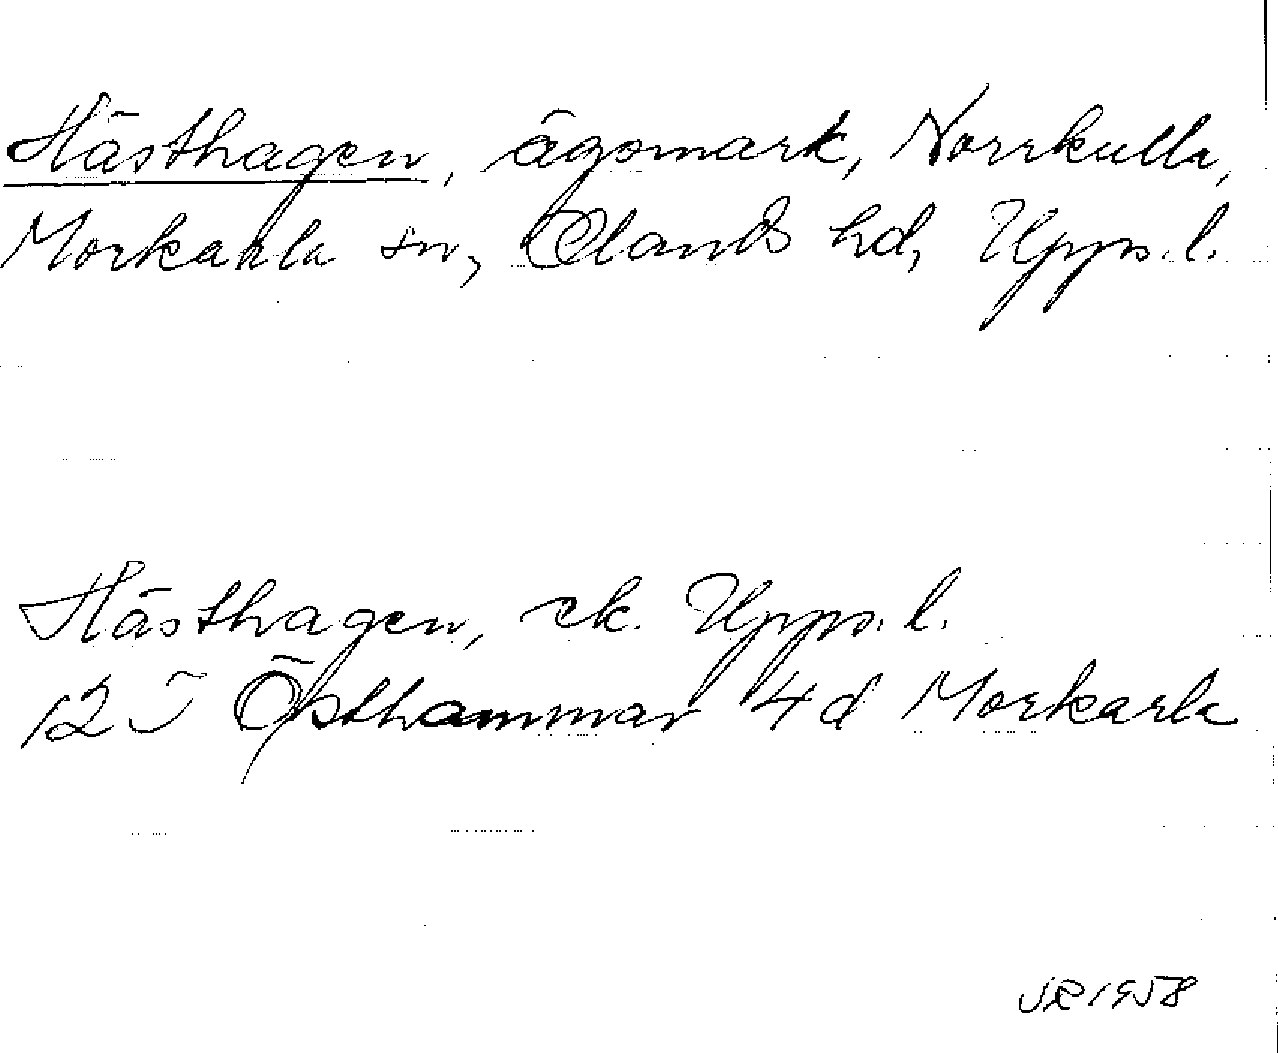 Hästhagen, ägomark, Norrkulla,
Morkarla sn, Olands hd, Upps. l.
Hästhagen, ek. Upps. l.
12 I Östhammar 4d Morkarla
JR 1958